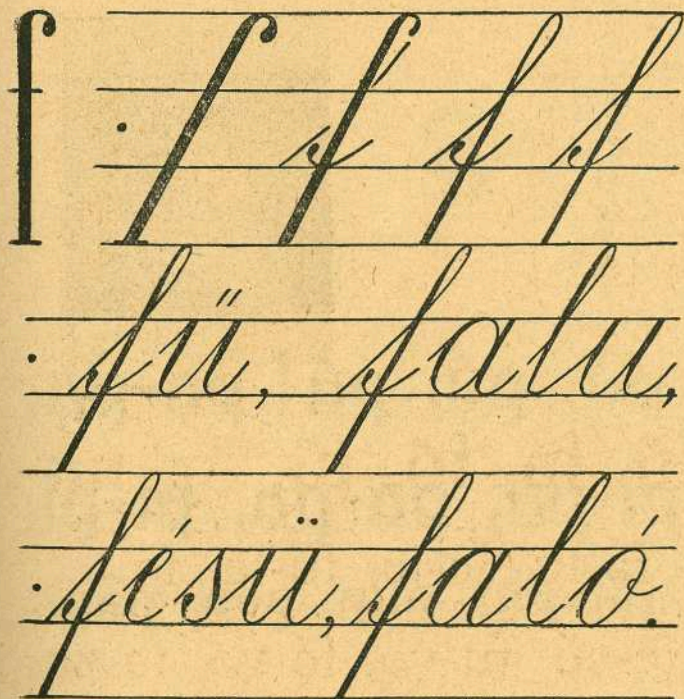 f f f f f
fű, falu,
fésü, faló.